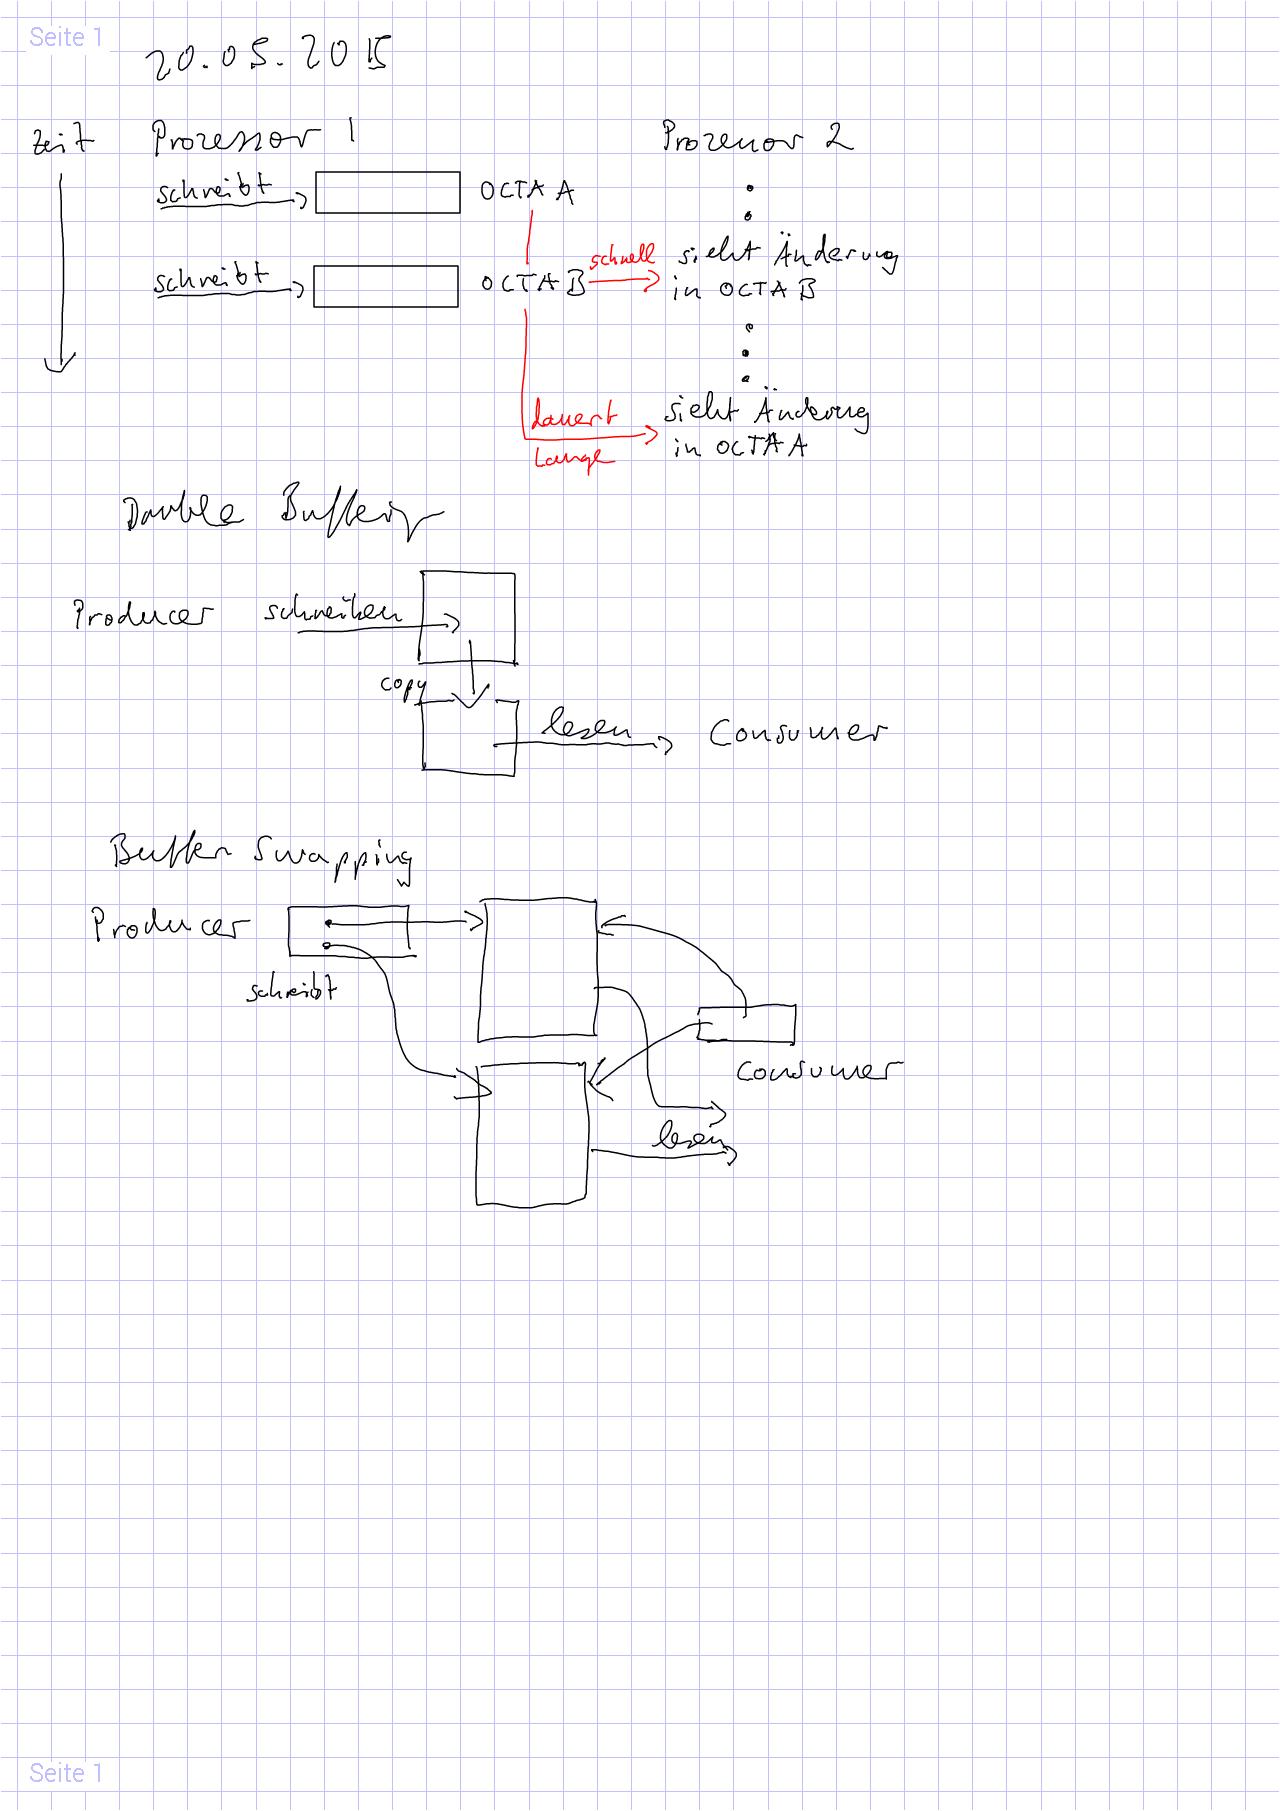 Seite 1
20.05.2015
Zeit Prozessor 1 Prozessor 2
schreibt OCTA A
schreibt OCTA B schnell sieht Änderung
in OCTA B
dauert sieht Änderung
lange in OCTA A
Double Buffering
Producer schreiben
copy
lesen Consumer
Buffer Swapping
Producer
schreibt
Consumer
lesen
Seite 1